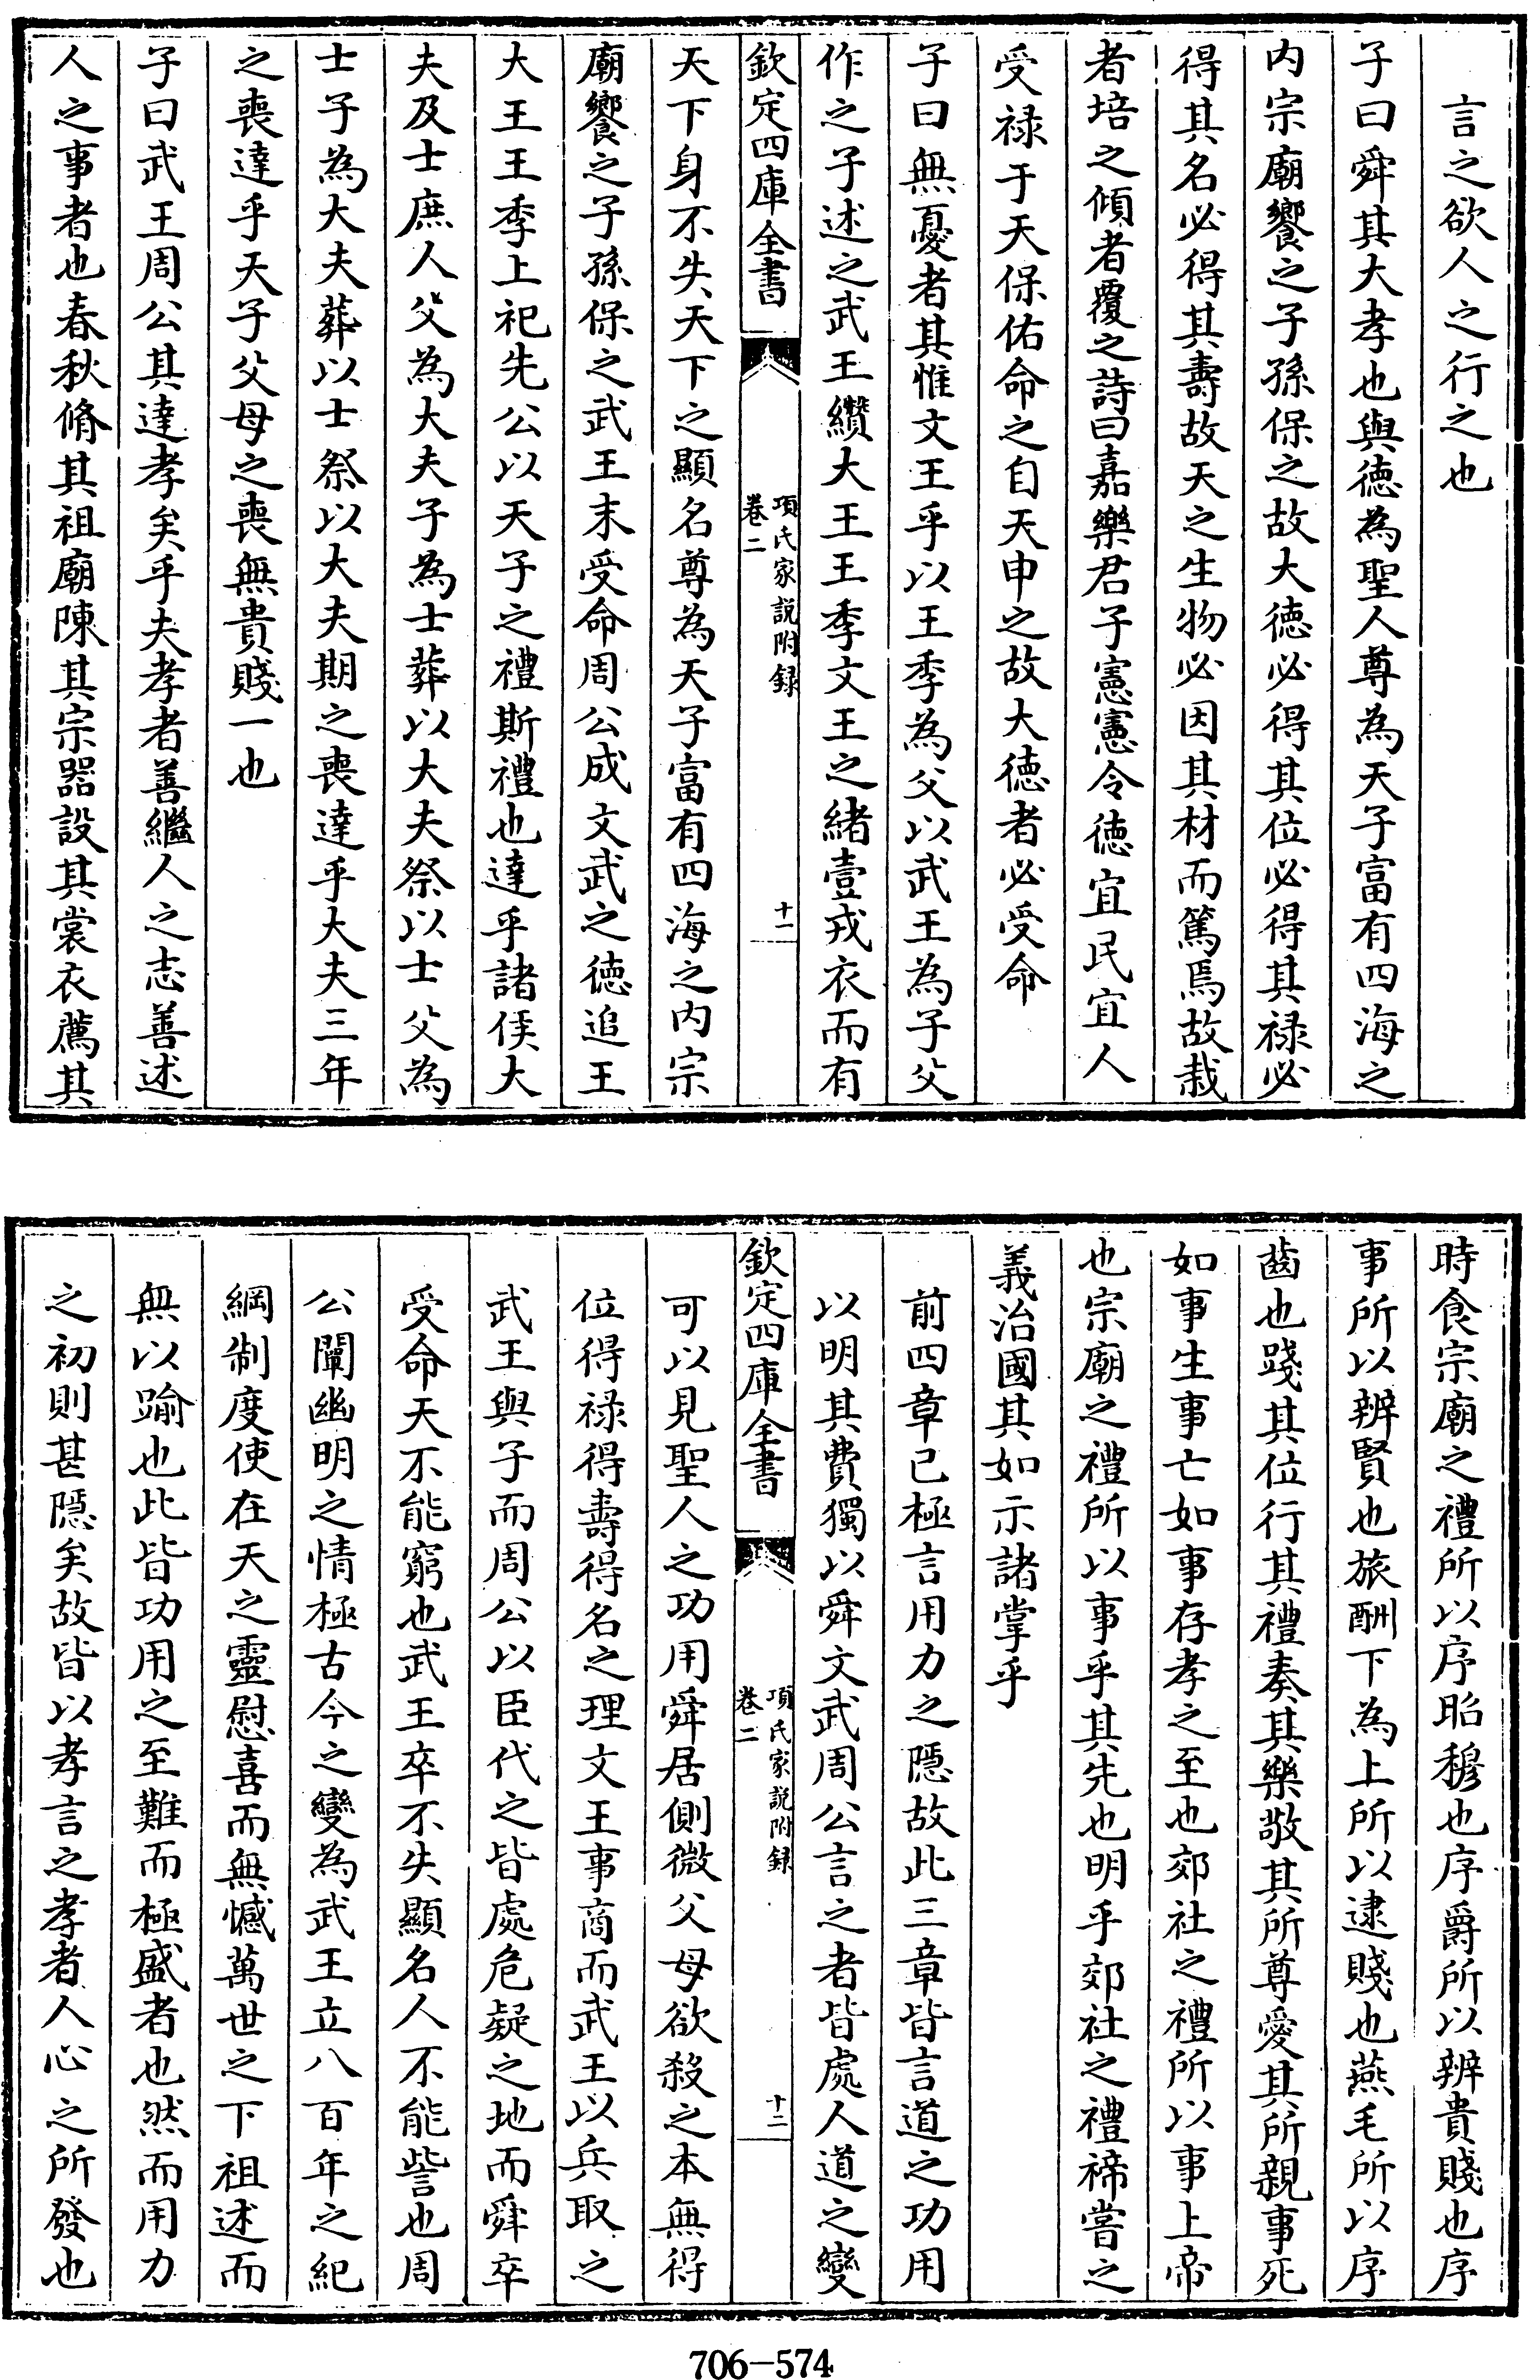 言之欲人之行之也
子曰舜其大孝也與徳為聖人尊為天子富有四海之
内宗廟饗之子孫保之故大徳必得其位必得其禄必
得其名必得其壽故天之生物必因其材而篤焉故栽
者培之傾者覆之詩曰嘉樂君子憲憲令徳宜民宜人
受禄于天保佑命之自天申之故大徳者必受命
子曰無憂者其惟文王乎以王季為父以武王為子父
作之子述之武王纘大王王季文王之緒壹戎衣而有
欽定四庫全書
項氏家説附録
卷二
十一
天下身不失天下之顯名尊為天子富有四海之内宗
廟饗之子孫保之武王末受命周公成文武之徳追王
大王王季上祀先公以天子之禮斯禮也達乎諸侯大
夫及士庶人父為大夫子為士葬以大夫祭以士父為
士子為大夫葬以士祭以大夫期之喪達乎大夫三年
之喪達乎天子父母之喪無貴賤一也
子曰武王周公其達孝矣乎夫孝者善繼人之志善述
人之事者也春秋脩其祖廟陳其宗器設其裳衣薦其
時食宗廟之禮所以序昭穆也序爵所以辨貴賤也序
事所以辨賢也旅酬下為上所以逮賤也燕毛所以序
齒也踐其位行其禮奏其樂敬其所尊愛其所親事死
如事生事亡如事存孝之至也郊社之禮所以事上帝
也宗廟之禮所以事乎其先也明乎郊社之禮禘嘗之
義治國其如示諸掌乎
前四章已極言用力之隱故此三章皆言道之功用
以明其費獨以舜文武周公言之者皆處人道之變
欽定四庫全書
項氏家説附録
卷二
十二
可以見聖人之功用舜居側微父母欲殺之本無得
位得禄得壽得名之理文王事商而武王以兵取之
武王與子而周公以臣代之皆處危疑之地而舜卒
受命天不能窮也武王卒不失顯名人不能訾也周
公闡幽明之情極古今之變為武王立八百年之紀
綱制度使在天之靈慰喜而無憾萬世之下祖述而
無以踰也此皆功用之至難而極盛者也然而用力
之初則甚隱矣故皆以孝言之孝者人心之所發也
706-574